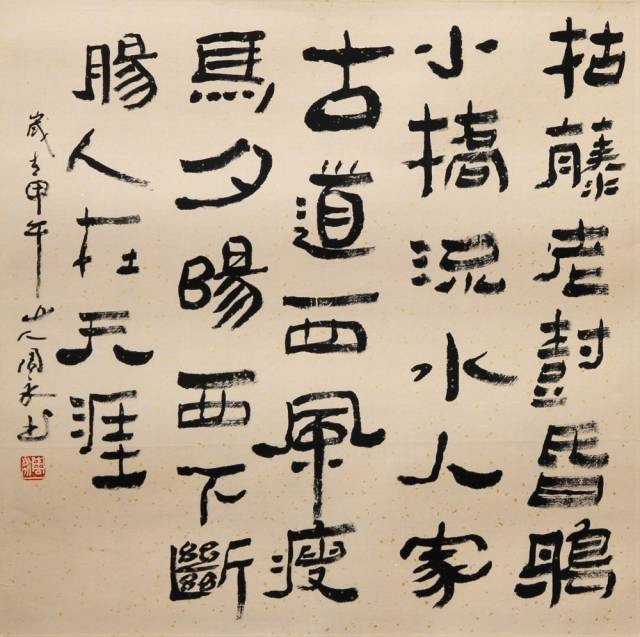 枯藤老樹昏鴉
小橋流水人家
古道西風瘦
馬夕陽西下斷
腸人在天涯
歲在甲午山人